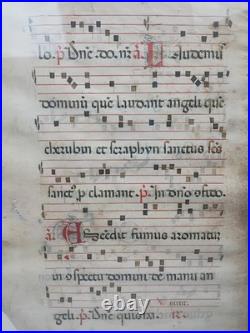 lo. p̄ Dñe. do. nr̄. ā. Laudemu
dominū que laudant angeli quē
cherubin et seraphyn sanctus sc̄s
sanctꝰ p clamant. p̄. In dño ꝯfido.
ā. Ascēdit fumus aromatū
in ꝯspectu domini de manu an
geli. p̄. Dñe quis